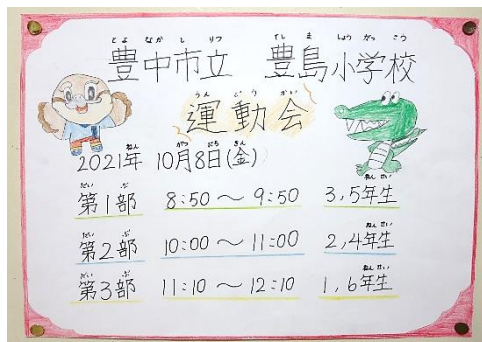 とよ なか し りつ てしま しょう がっ こう
豊中市立 豊島小学校
うん どう かい
運動会
ねん がつ にち きん
2021年 10月8日(金)
だい ぶ ねん せい
第1部 8:50～9:50 3,5年生
だい ぶ ねん せい
第2部 10:00～11:00 2,4年生
だい ぶ ねん せい
第3部 11:10～12:10 1,6年生